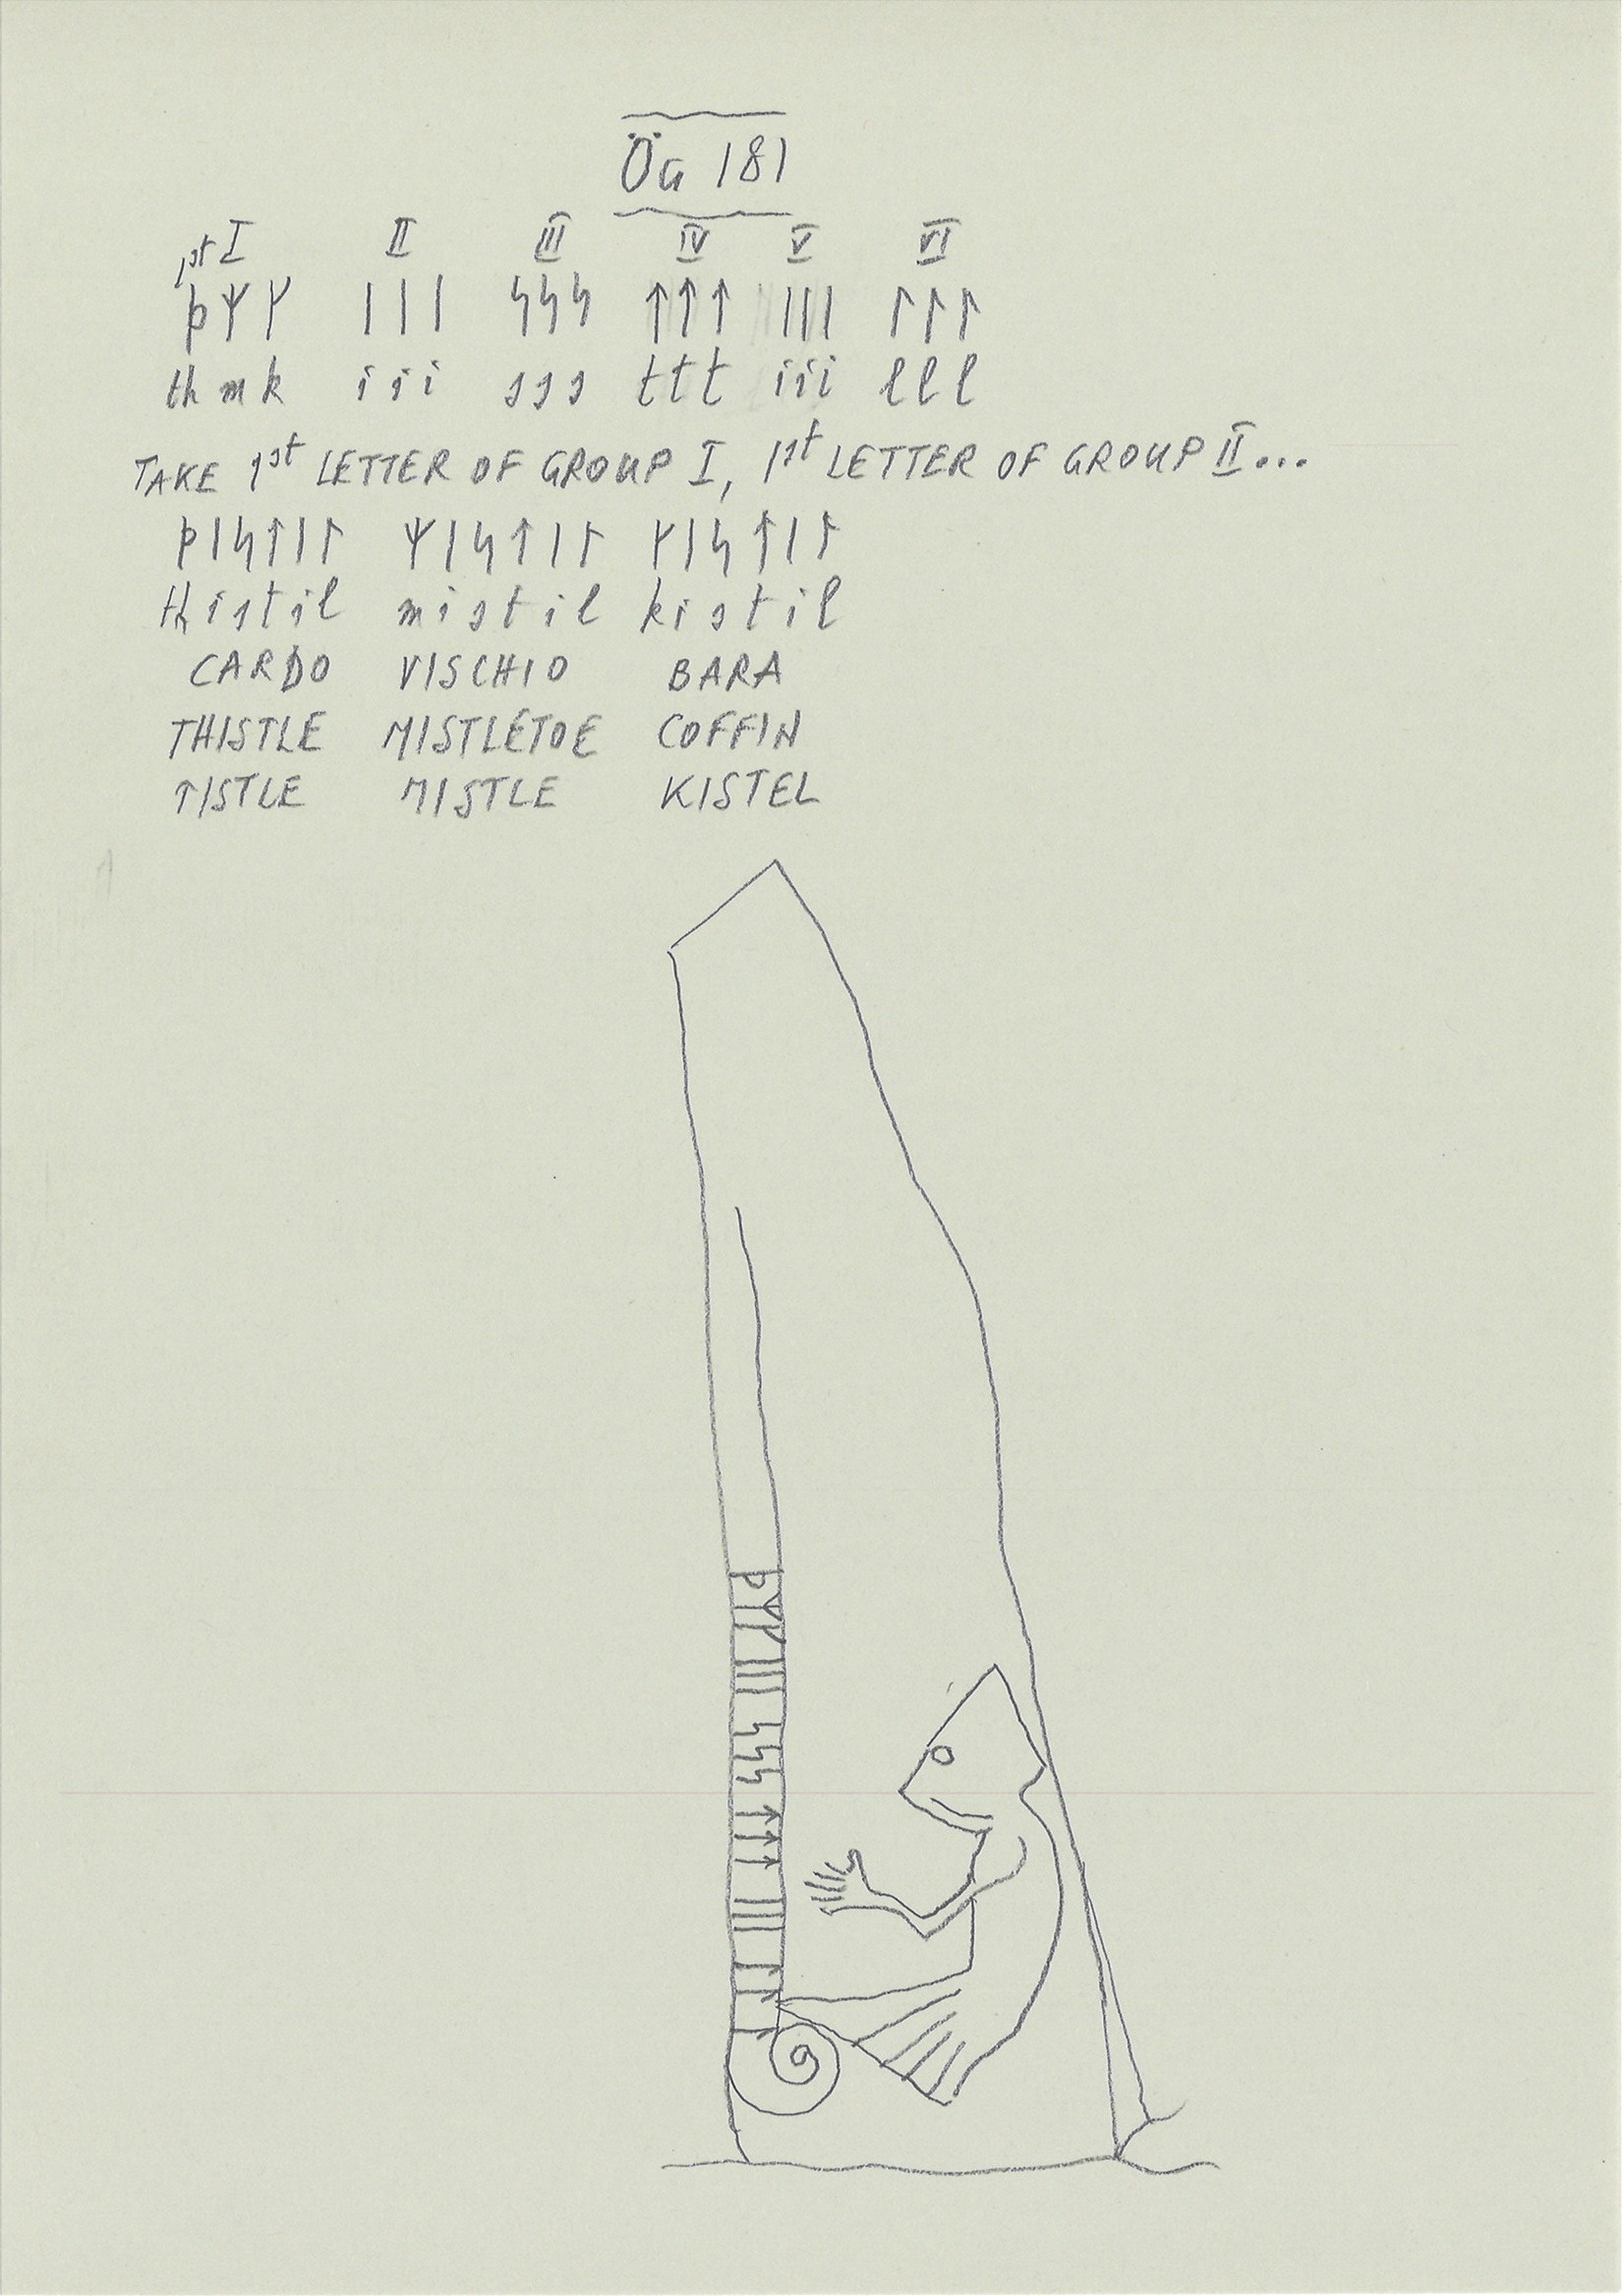 ÖG 181
1st I II III IV V VI
ᚦᛘᚴ ᛁᛁᛁ ᛋᛋᛋ ᛏᛏᛏ ᛁᛁᛁ ᛚᛚᛚ
th m k i i i s s s t t t i i i l l l
TAKE 1st LETTER OF GROUP I, 1st LETTER OF GROUP II...
ᚦᛁᛋᛏᛁᛚ ᛘᛁᛋᛏᛁᛚ ᚴᛁᛋᛏᛁᛚ
thistil mistil kistil
CARDO VISCHIO BARA
THISTLE MISTLETOE COFFIN
TISTLE MISTLE KISTEL
ᚦᛘᚴᛁᛁᛁᛋᛋᛋᛏᛏᛏᛁᛁᛁᛚᛚᛚ